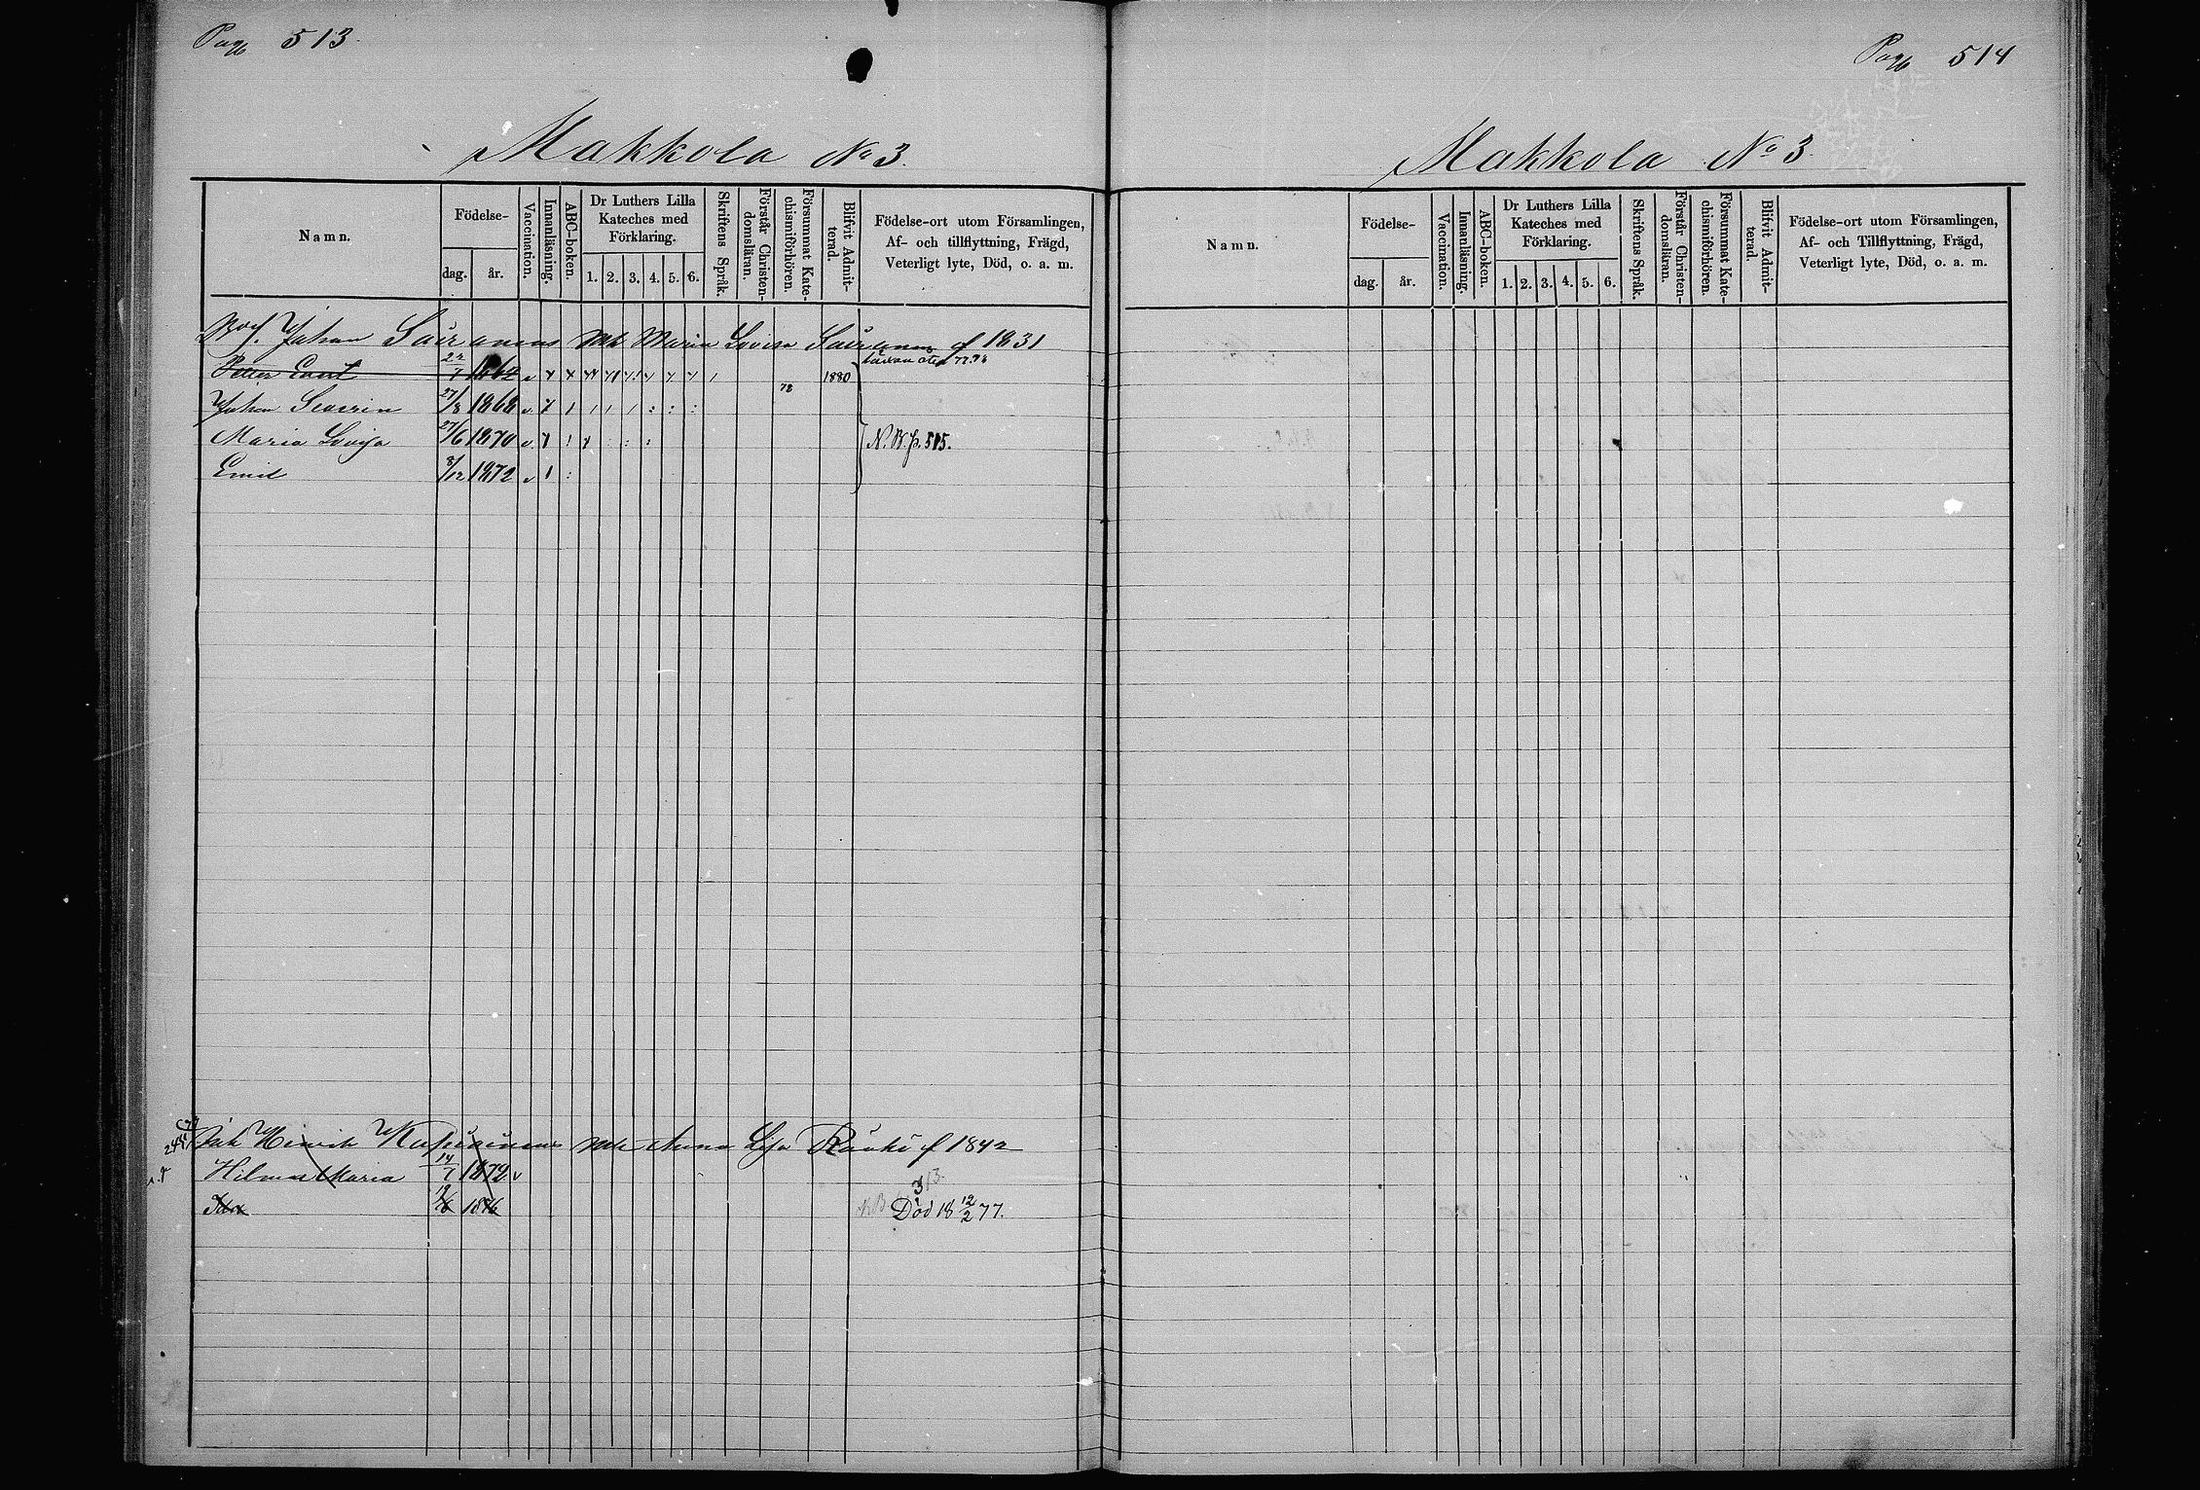 Pag 513.
Makkola No 3.
Namn.
Födelse-
dag.
år.
Vaccination.
Innanläsning.
ABC-boken.
Dr Luthers Lilla
Kateches med
Förklaring.
1. 2. 3. 4. 5. 6.
Skriftens Språk.
Förstår Christen-
domsläran.
Försummat Kate-
chismiförhören.
Blifvit Admit-
terad.
Födelse-ort utom Församlingen,
Af- och tillflyttning, Frägd,
Veterligt lyte, Död, o. a. m.
Johan Mb Maria Lovisa f 1831
Petter 1880
Johan Severin 27/8 1868 v
Maria Lovisa 27/6 1870 v N.B. p. 515.
Emil 8/12 1872 v
Hinrik Anna f 1842
Hilma Maria 14/7 1872 v
313.
Ida 1876 Död 18 12/2 77.
Pag 514
Makkola No 3.
Namn.
Födelse-
dag.
år.
Vaccination.
Innanläsning.
ABC-boken.
Dr Luthers Lilla
Kateches med
Förklaring.
1. 2. 3. 4. 5. 6.
Skriftens Språk.
Förstår Christen-
domsläran.
Försummat Kate-
chismiförhören.
Blifvit Admit-
terad.
Födelse-ort utom Församlingen,
Af- och Tillflyttning, Frägd,
Veterligt lyte, Död, o. a. m.